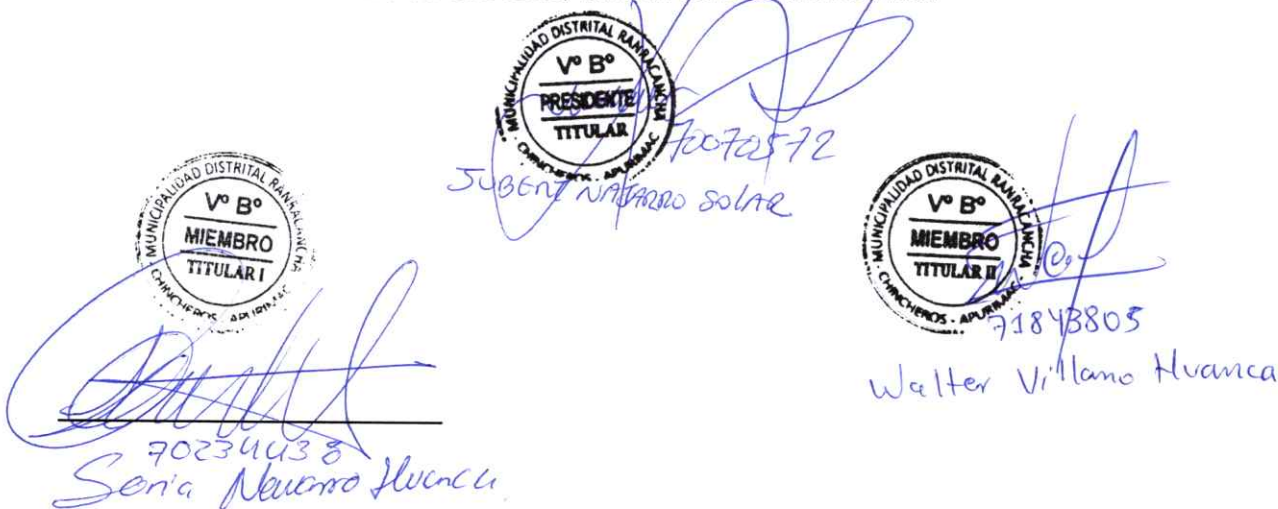 MUNICIPALIDAD DISTRITAL RANRACANCHA
V° B°
PRESIDENTE
TITULAR
CHINCHEROS - APURIMAC
70070572
JUBERT NAJARRO SOLAR
MUNICIPALIDAD DISTRITAL RANRACANCHA
V° B°
MIEMBRO
TITULAR I
CHINCHEROS - APURIMAC
70234438
Sonia Navarro Huanca
MUNICIPALIDAD DISTRITAL RANRACANCHA
V° B°
MIEMBRO
TITULAR II
CHINCHEROS - APURIMAC
71843805
Walter Villano Huanca